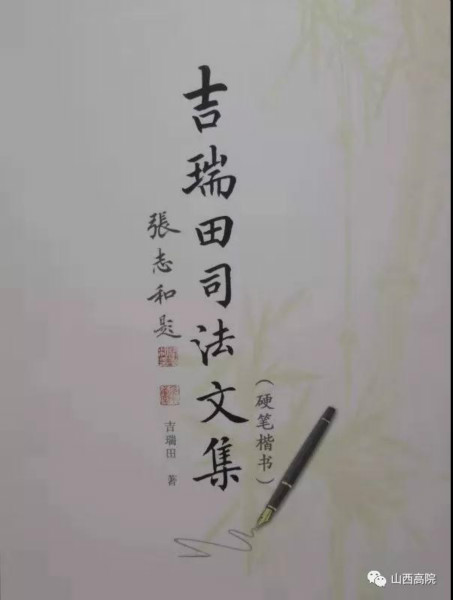 吉瑞田司法文集
（硬笔楷书）
張志和题
吉瑞田 著
山西高院